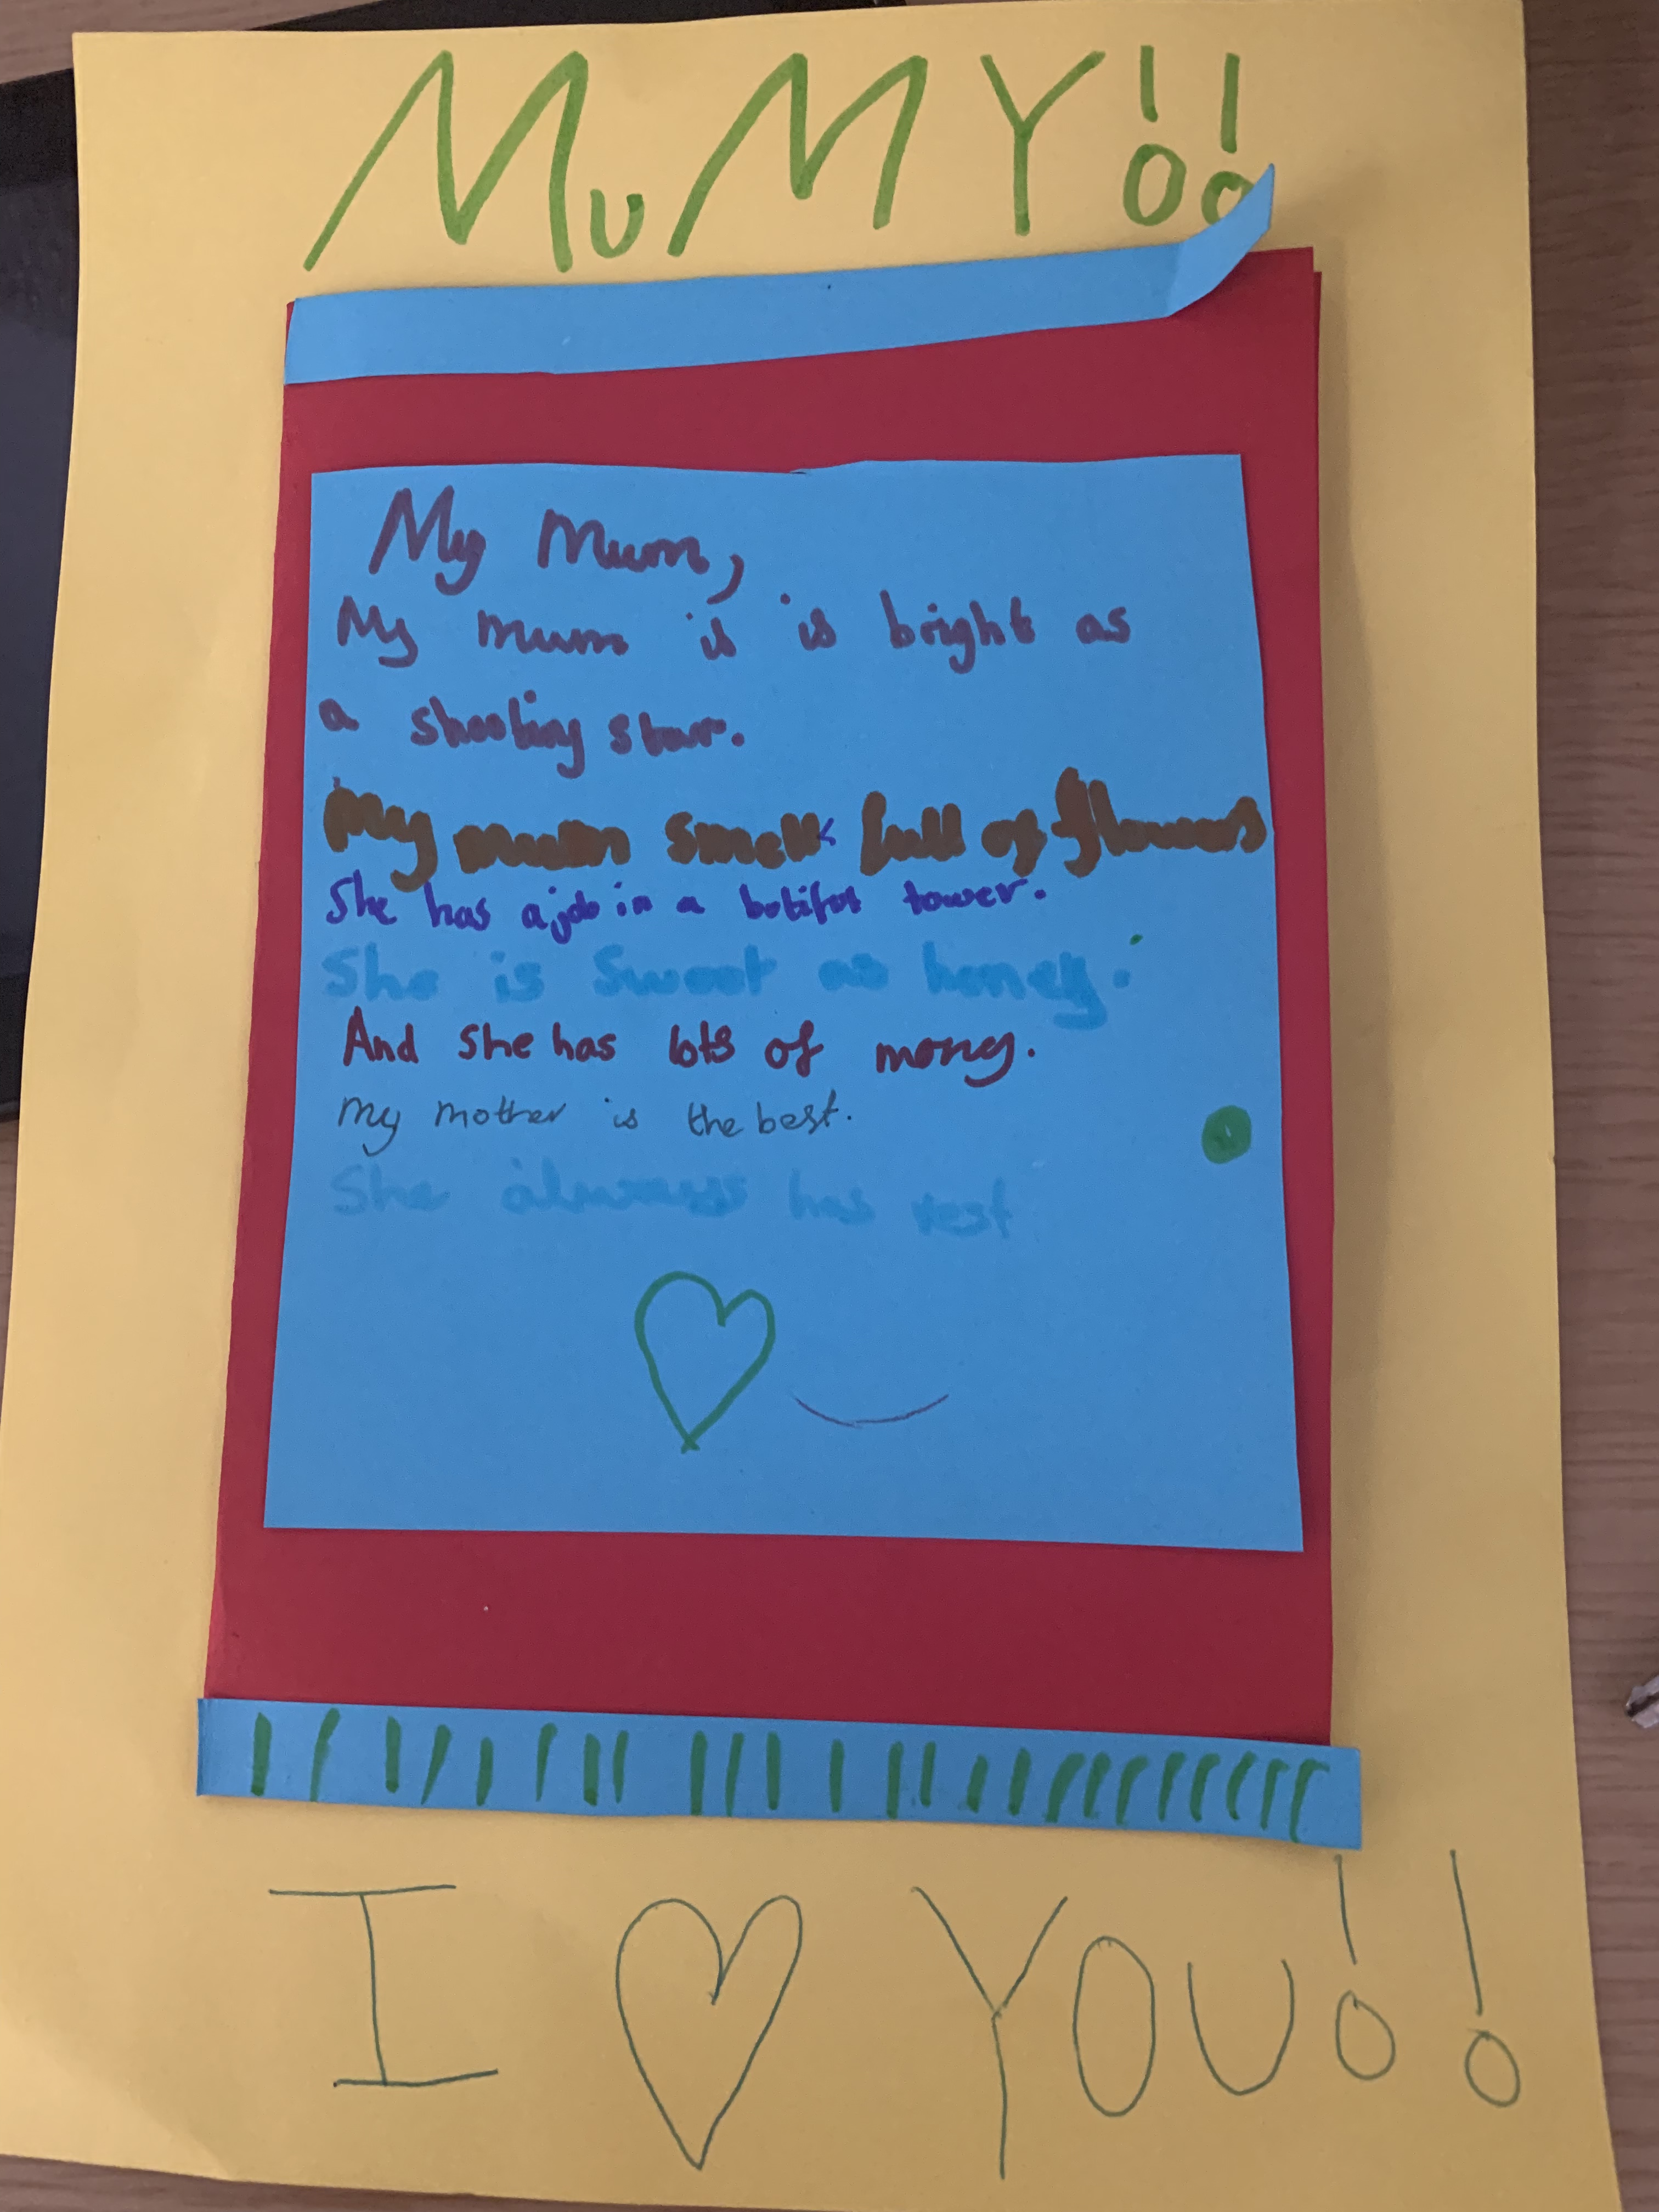 MuMMY!!
My Mum,
My mum is is bright as
a shooting star.
My mum smells full of flowers
She has a job in a botifot tower.
She is Sweet as honey.
And she has lots of mony.
my mother is the best.
She always has rest
I ♡ YOU!!